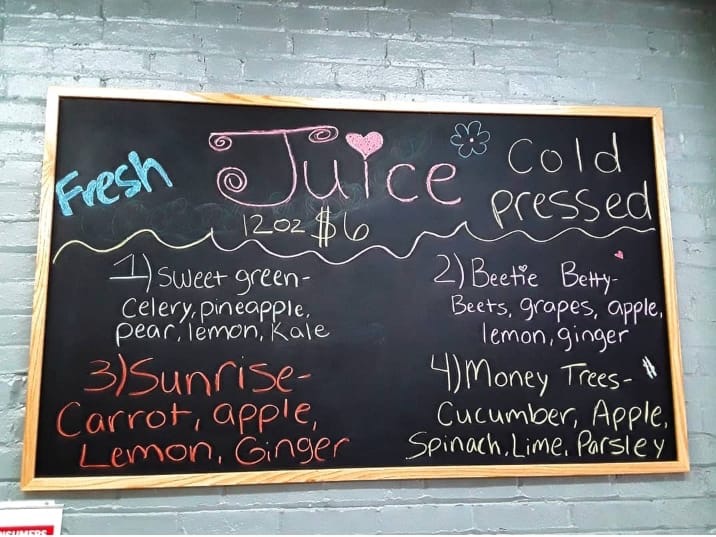 Fresh Juice Cold
pressed
12oz $6
1) Sweet green-
Celery, pineapple,
pear, lemon, Kale
2) Beetie Betty-
Beets, grapes, apple,
lemon, ginger
3) Sunrise-
Carrot, apple,
Lemon, Ginger
4) Money Trees- $
Cucumber, Apple,
Spinach, Lime, Parsley
NSUMERS